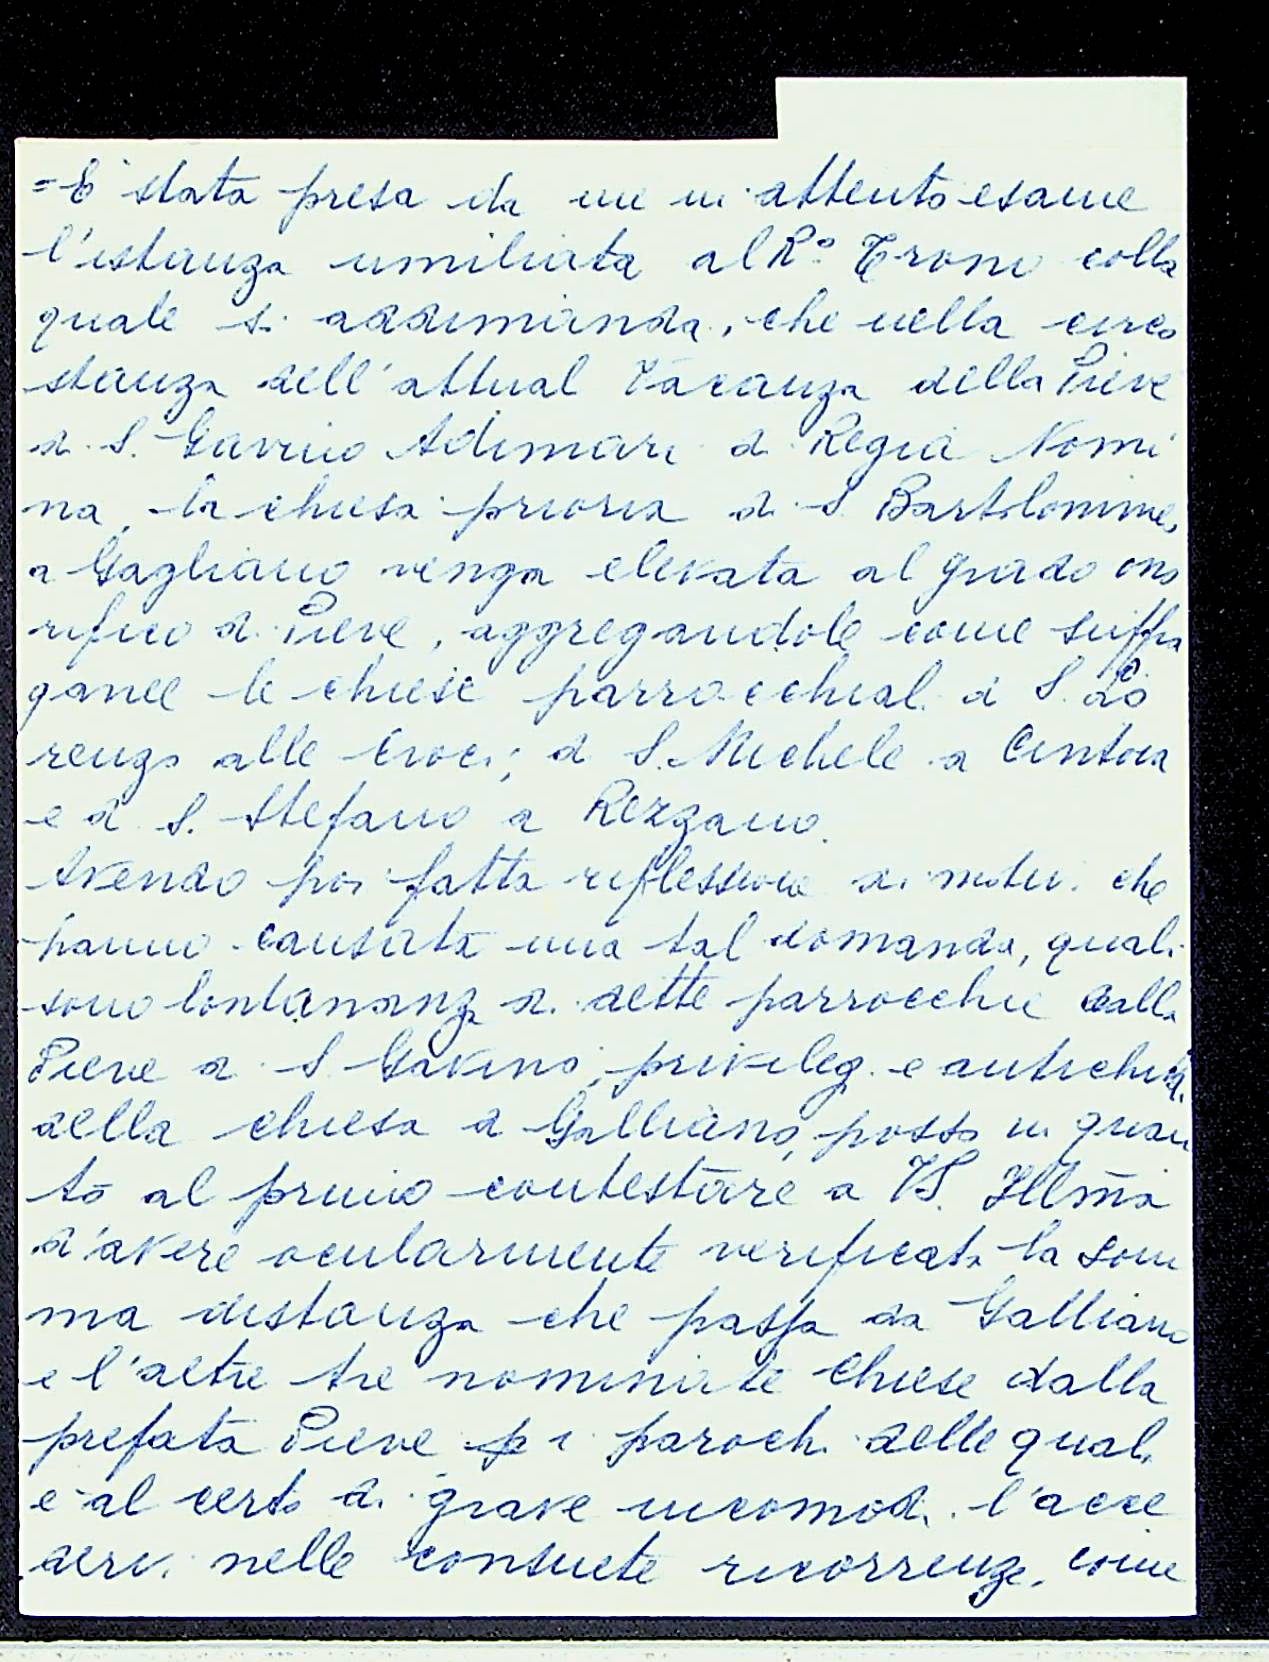 = E' stata presa da me in attento esame
l'istanza umiliata al R.° Trono colla
quale si addimanda, che nella circo
stanza dell'attual Vacanza della Pieve
di S. Gavino Adimari di Regia Nomi
na, la chiesa prioria di S. Bartolommeo
a Gagliano venga elevata al grado ono
rifico di Pieve, aggregandole come suffra
ganee le chiese parrocchiali di S. Lo
renzo alle Croci; di S. Michele a Cintoia
e di S. Stefano a Rezzano.
Avendo poi fatta riflessione ai motivi che
hanno causata una tal domanda, quali
sono lontananza di dette parrocchie dalla
Pieve di S. Gavino, privilegi e antichità
della chiesa di Galliano, posso in quan
to al primo contestare a VS. Ill̃ma
d'avere ocularmente verificata la som
ma distanza che passa da Galliano
e l'altre tre nominate Chiese dalla
prefata Pieve p i parochi delle quali
e al certo di grave incomodi l'acce
dervi nelle consuete ricorrenze, come